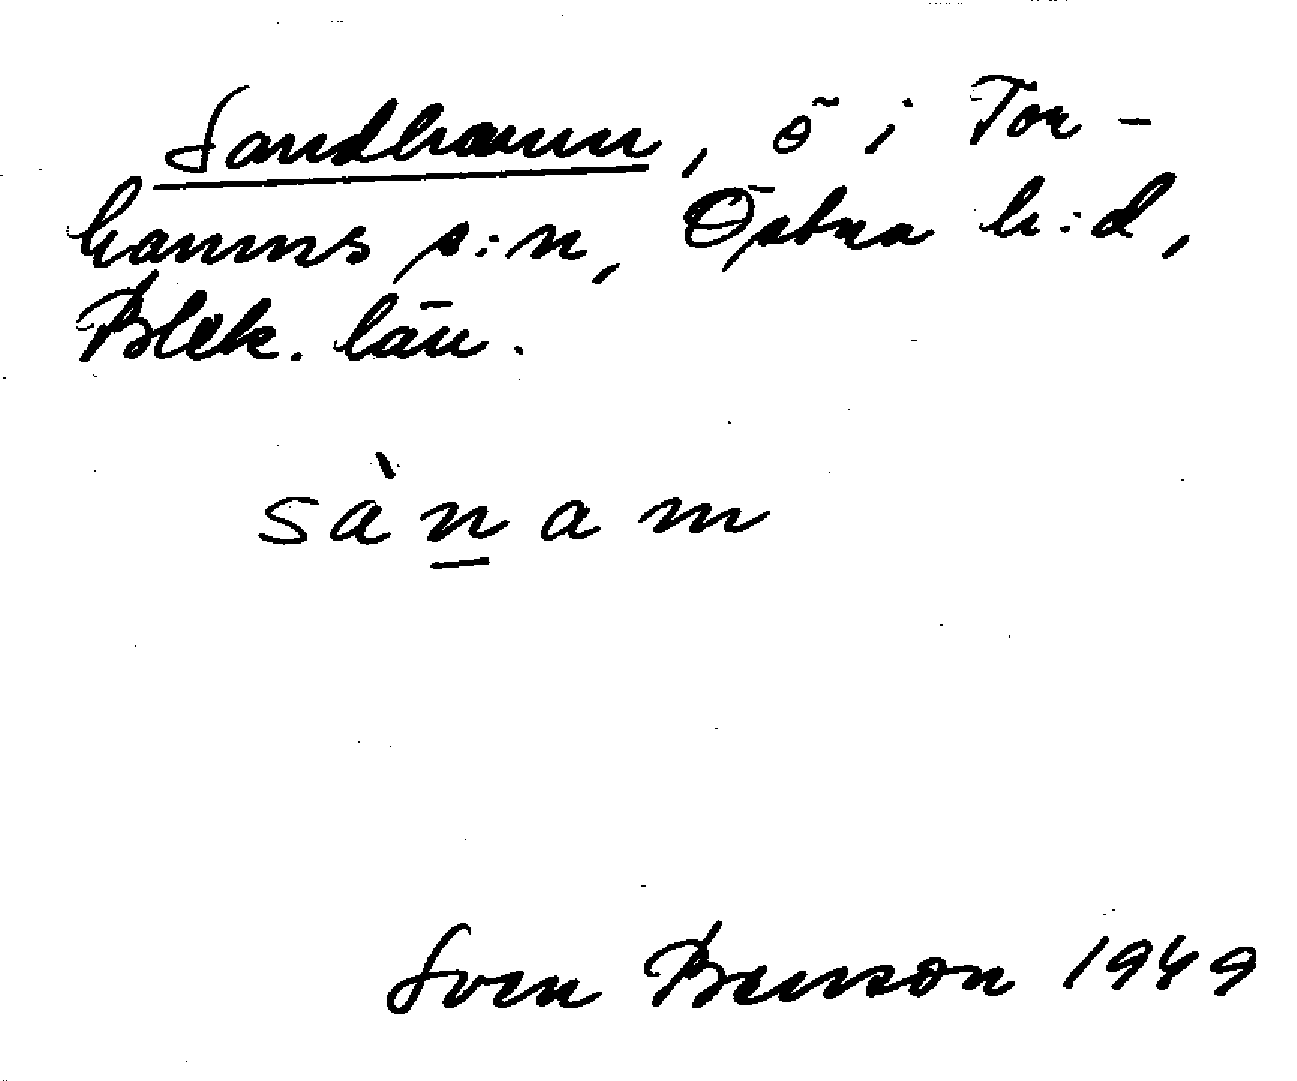 Sandhamn, ö i Tor-
hamns s:n, Östra h:d,
Blek. län.
sànam
Sven Benson 1949